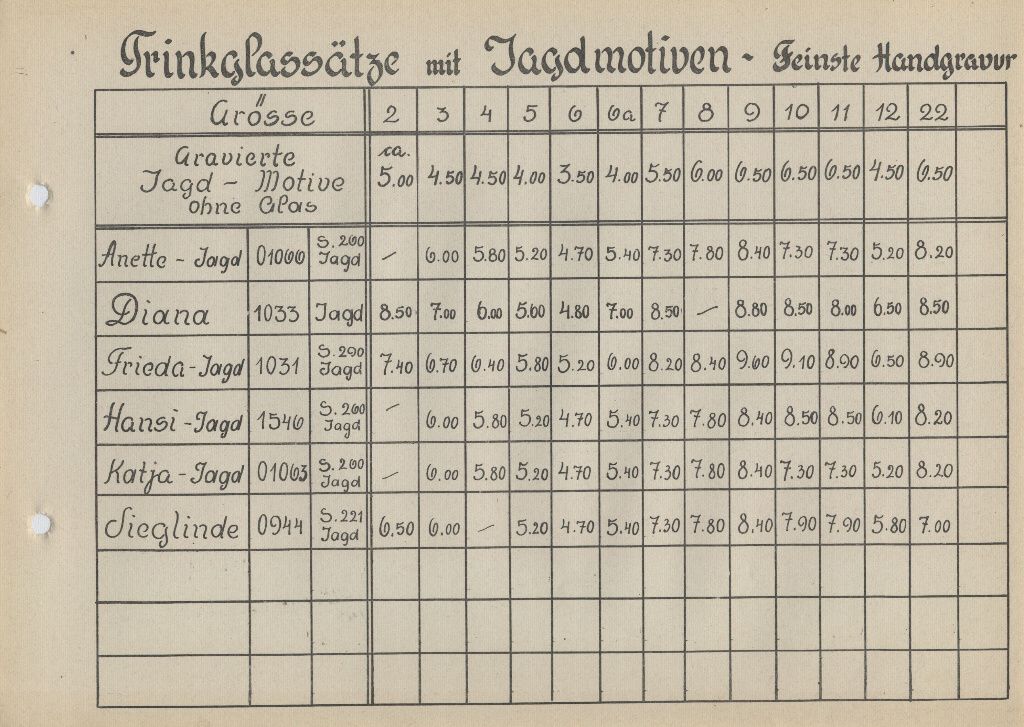 Trinkglassätze mit Jagdmotiven - Feinste Handgravur
Grösse 2 3 4 5 6 6a 7 8 9 10 11 12 22
Gravierte Jagd - Motive ohne Glas ca. 5.00 4.50 4.50 4.00 3.50 4.00 5.50 6.00 6.50 6.50 6.50 4.50 6.50
Anette - Jagd 01060 S. 260 Jagd — 6.00 5.80 5.20 4.70 5.40 7.30 7.80 8.40 7.30 7.30 5.20 8.20
Diana 1033 Jagd 8.50 7.00 6.00 5.60 4.80 7.00 8.50 — 8.80 8.50 8.00 6.50 8.50
Frieda - Jagd 1031 S. 290 Jagd 7.40 6.70 6.40 5.80 5.20 6.00 8.20 8.40 9.60 9.10 8.90 6.50 8.90
Hansi - Jagd 1546 S. 260 Jagd — 6.00 5.80 5.20 4.70 5.40 7.30 7.80 8.40 8.50 8.50 6.10 8.20
Katja - Jagd 01063 S. 260 Jagd — 6.00 5.80 5.20 4.70 5.40 7.30 7.80 8.40 7.30 7.30 5.20 8.20
Sieglinde 0944 S. 221 Jagd 6.50 6.00 — 5.20 4.70 5.40 7.30 7.80 8.40 7.90 7.90 5.80 7.00